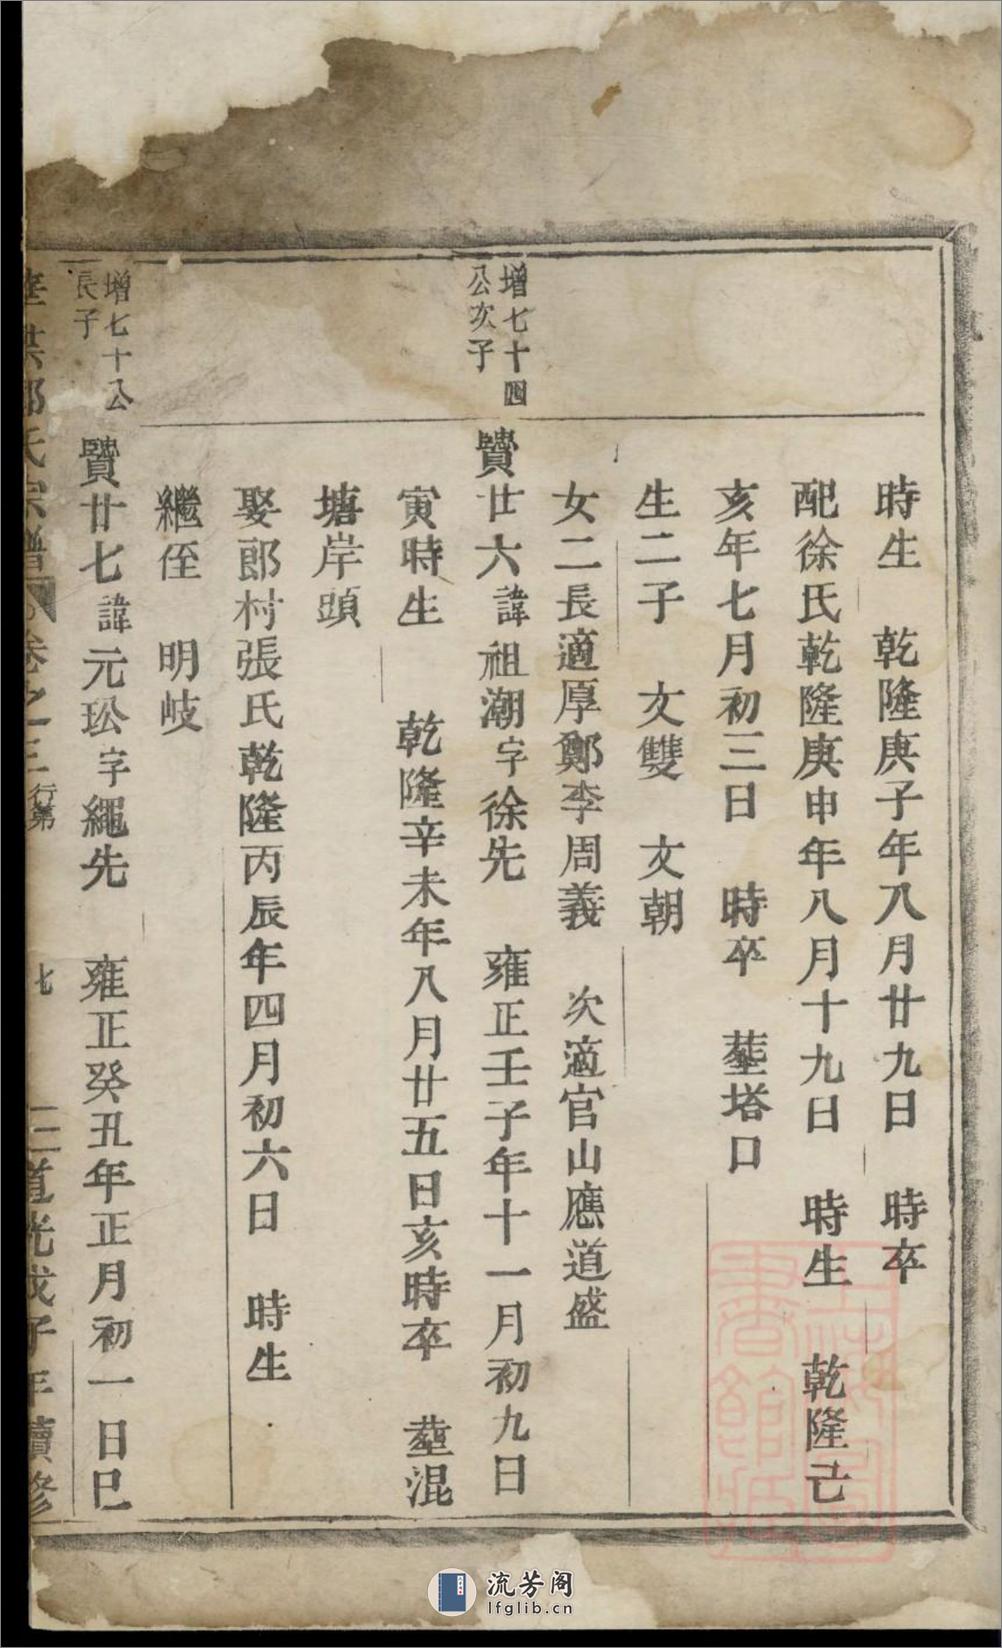 時生　乾隆庚子年八月廿九日　時卒
配徐氏乾隆庚申年八月十九日　時生　乾隆己
亥年七月初三日　時卒　塟塔口
生二子　文雙　文朝
女二長適厚鄭李周義　次適官山應道盛
增七十四
公次子
贒廿六諱祖潮字徐先　雍正壬子年十一月初九日
寅時生　乾隆辛未年八月廿五日亥時卒　塟混
塘岸頭
娶郎村張氏乾隆丙辰年四月初六日　時生
繼侄　明岐
增七十公
長子
贒廿七諱元玜字繩先　雍正癸丑年正月初一日巳
氏宗譜　卷之三　行第　七　道光戊子年續修
流芳阁
lfglib.cn